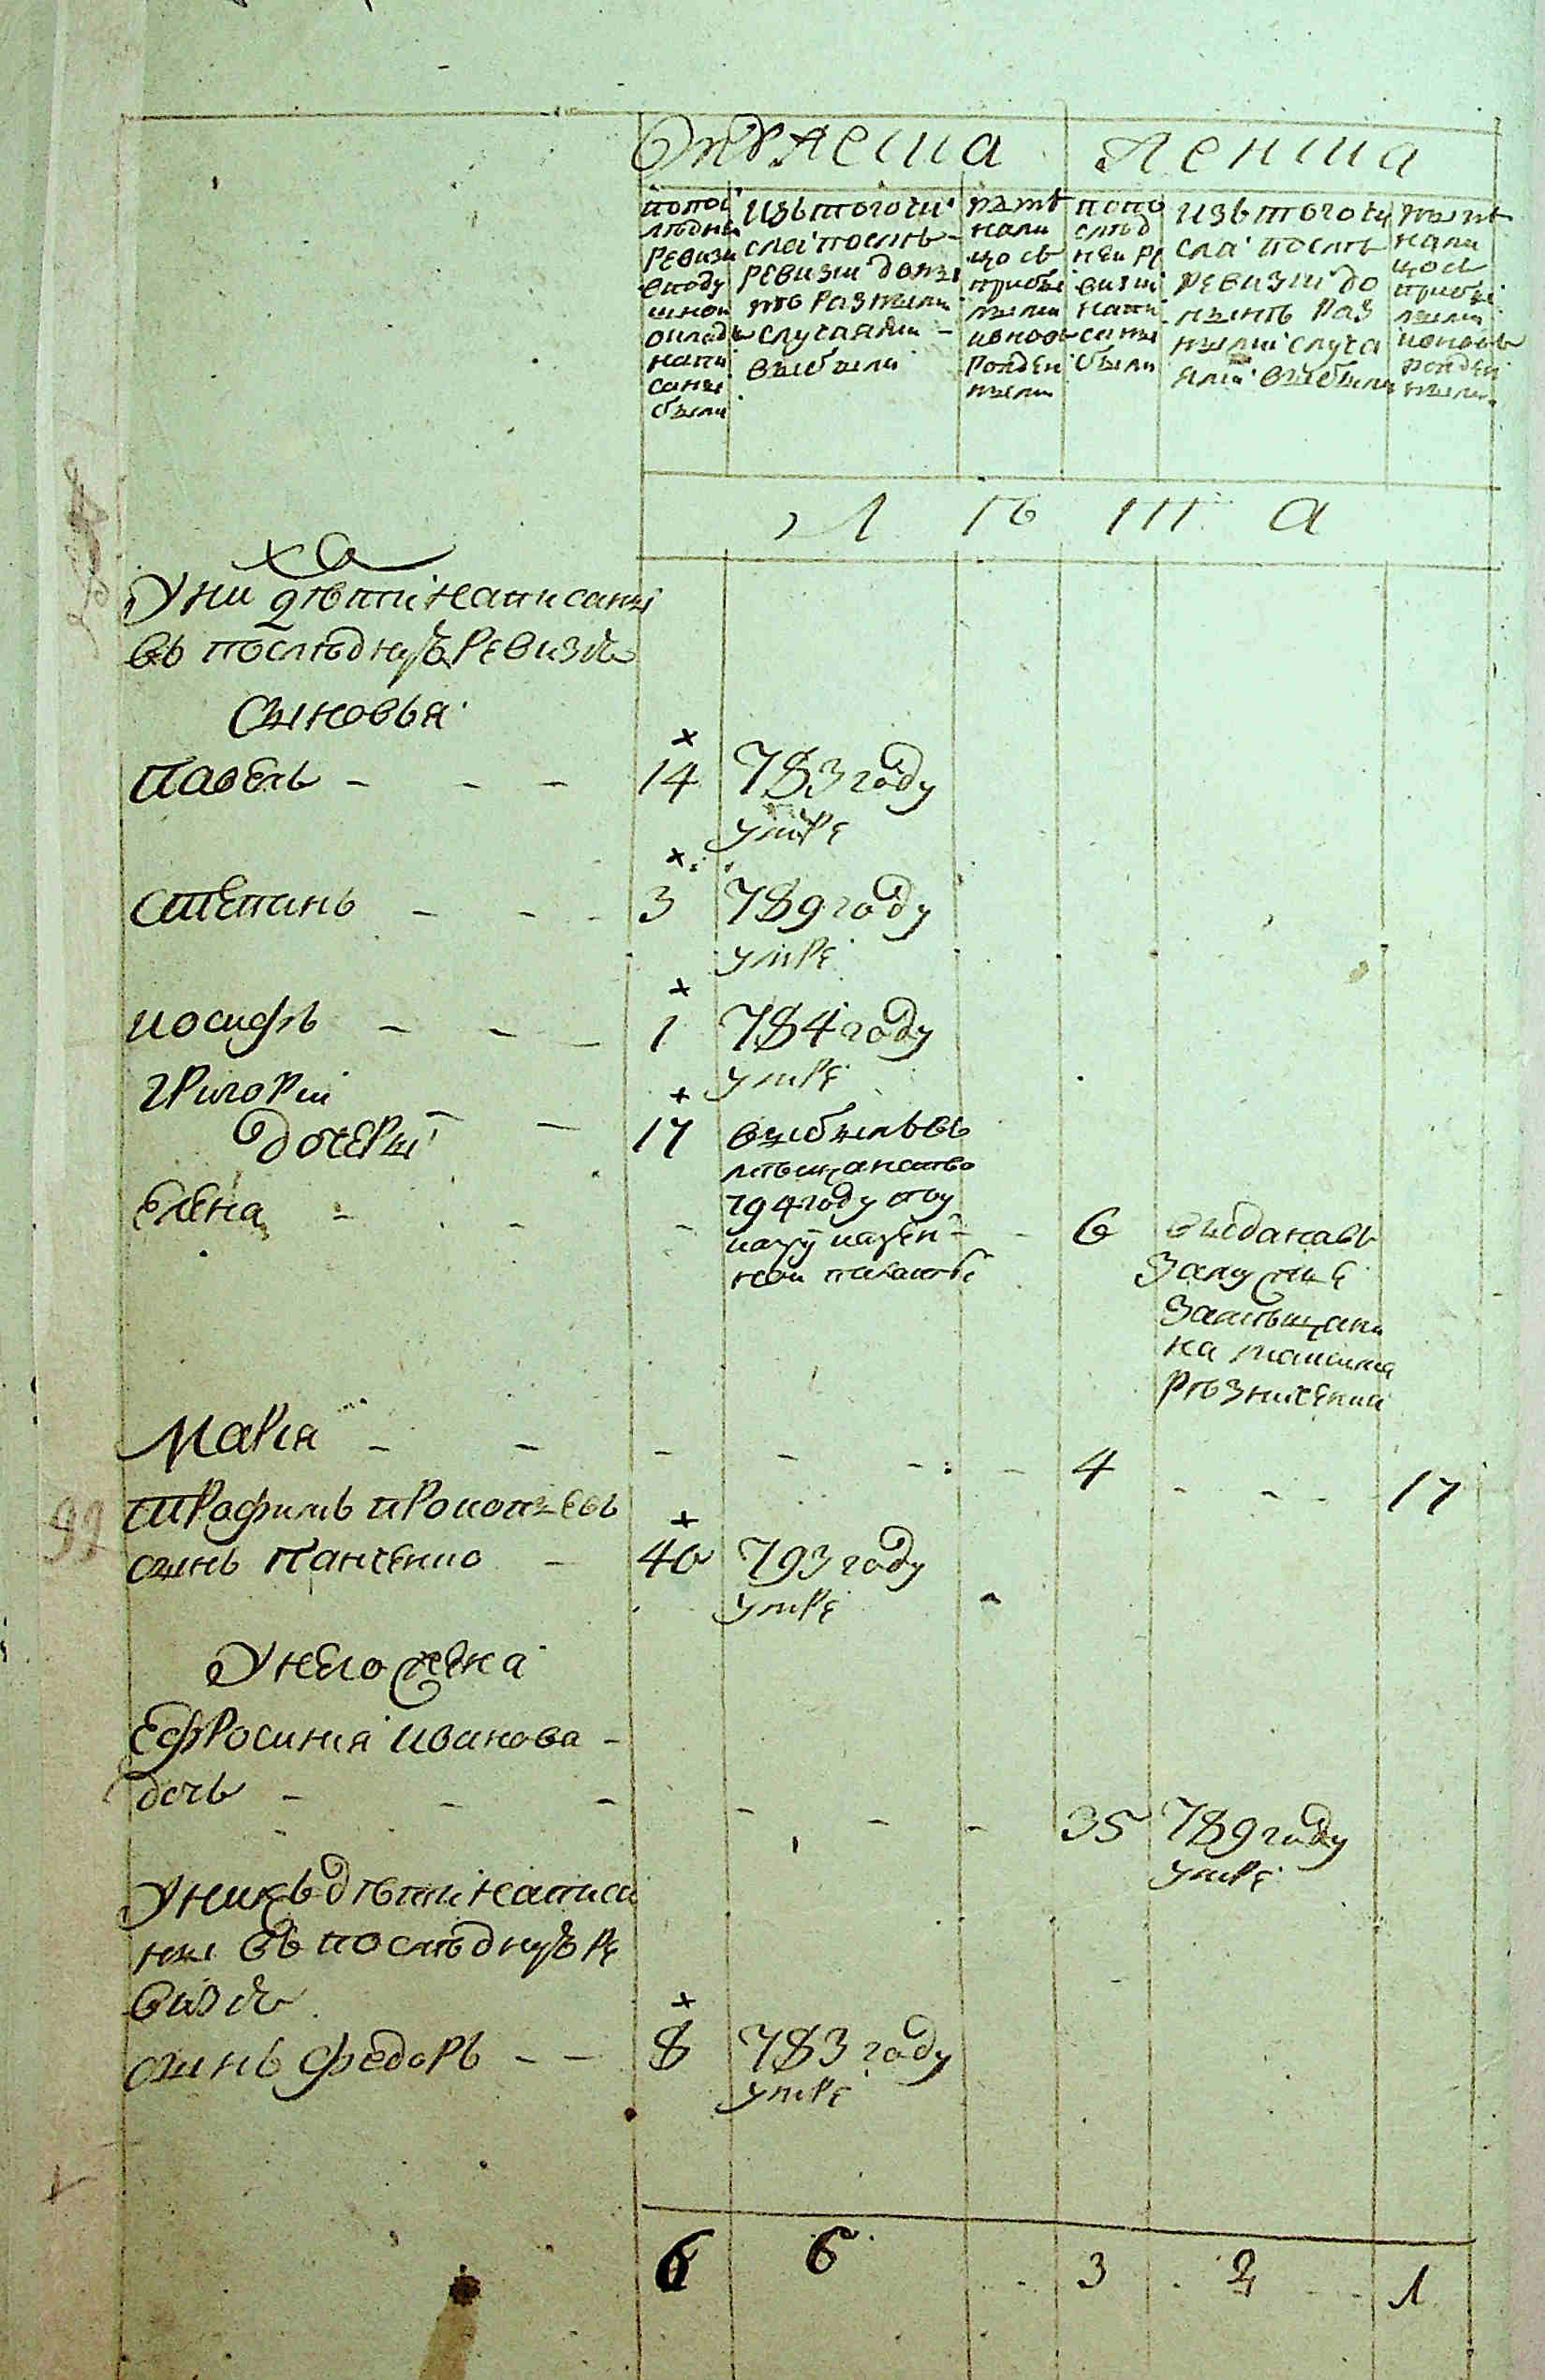 Мужеска Женска
попос
лѣдней
ревизи
вподу
шной
окладъ
напи
саны
были
изьтогочи
сла послѣ
ревизии доны
нѣ разными
случаями
выбыли
нынѣ
нали
цо съ
прибы
лыми
ивновь
рожден
ными
попо
слѣд
ней ре
визии
напи
саны
были
изь тогочи
сла послѣ
ревизии до
нынѣ раз
ными случа
ями выбыли
нынѣ
нали
цось
прибы
лыми
ивновь
рожден
ными
Л ѣ т а
Уни дѣти написаны
въ последнуъ ревизію
Сыновья
Павелъ - - - 14 783 году
умре
Степанъ - - - 3 789 году
умре
иосифъ - - - 1 784 году
умре
григории - - 17 выбылъ въ
мѣщанство
794 году по
указу казен
ной палаты
дочери
Елена - - - 6 выданавъ
замужже
замѣщани
на
Марія - - - - - - 4 - - - 17
трофимъ прокопьевъ
сынъ Панченко - 40 793 году
умре
Унего жена
Ефросинія иванова
дочь - - - - - - 35 789 году
умре
Унихъ дѣти написа
ны въ последнуъ ре
визію
сынъ федоръ - - 8 783 году
умре
6 6 - 3 2 1
99